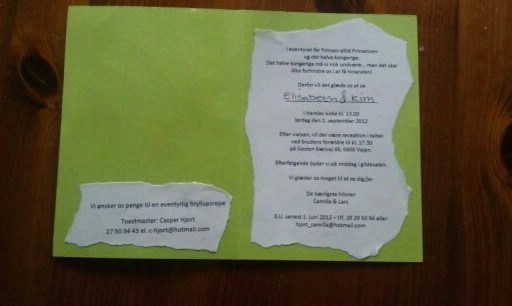 Vi ønsker os penge til en eventyrlig bryllupsrejse
Toastmaster: Casper Hjort
27 50 94 43 el. c-hjort@hotmail.com
I eventyret får Prinsen altid Prinsessen
og det halve kongerige.
Det halve kongerige må vi nok undvære... men det skal
ikke forhindre os i at få hinanden!
Derfor vil det glæde os at se
Elisabeth & Kim
i Henslev kirke kl. 13.00
lørdag den 1. september 2012
Efter vielsen, vil der være reception i teltet
ved brudens forældre til kl. 17.30
på Gesten Kærvej 46, 6600 Vejen.
Efterfølgende byder vi på middag i gildesalen.
Vi glæder os meget til at se dig/jer
De kærligste hilsner
Camilla & Lars
S.U. senest 1. juni 2012 – tlf. 28 29 50 94 eller
hjort_camilla@hotmail.com